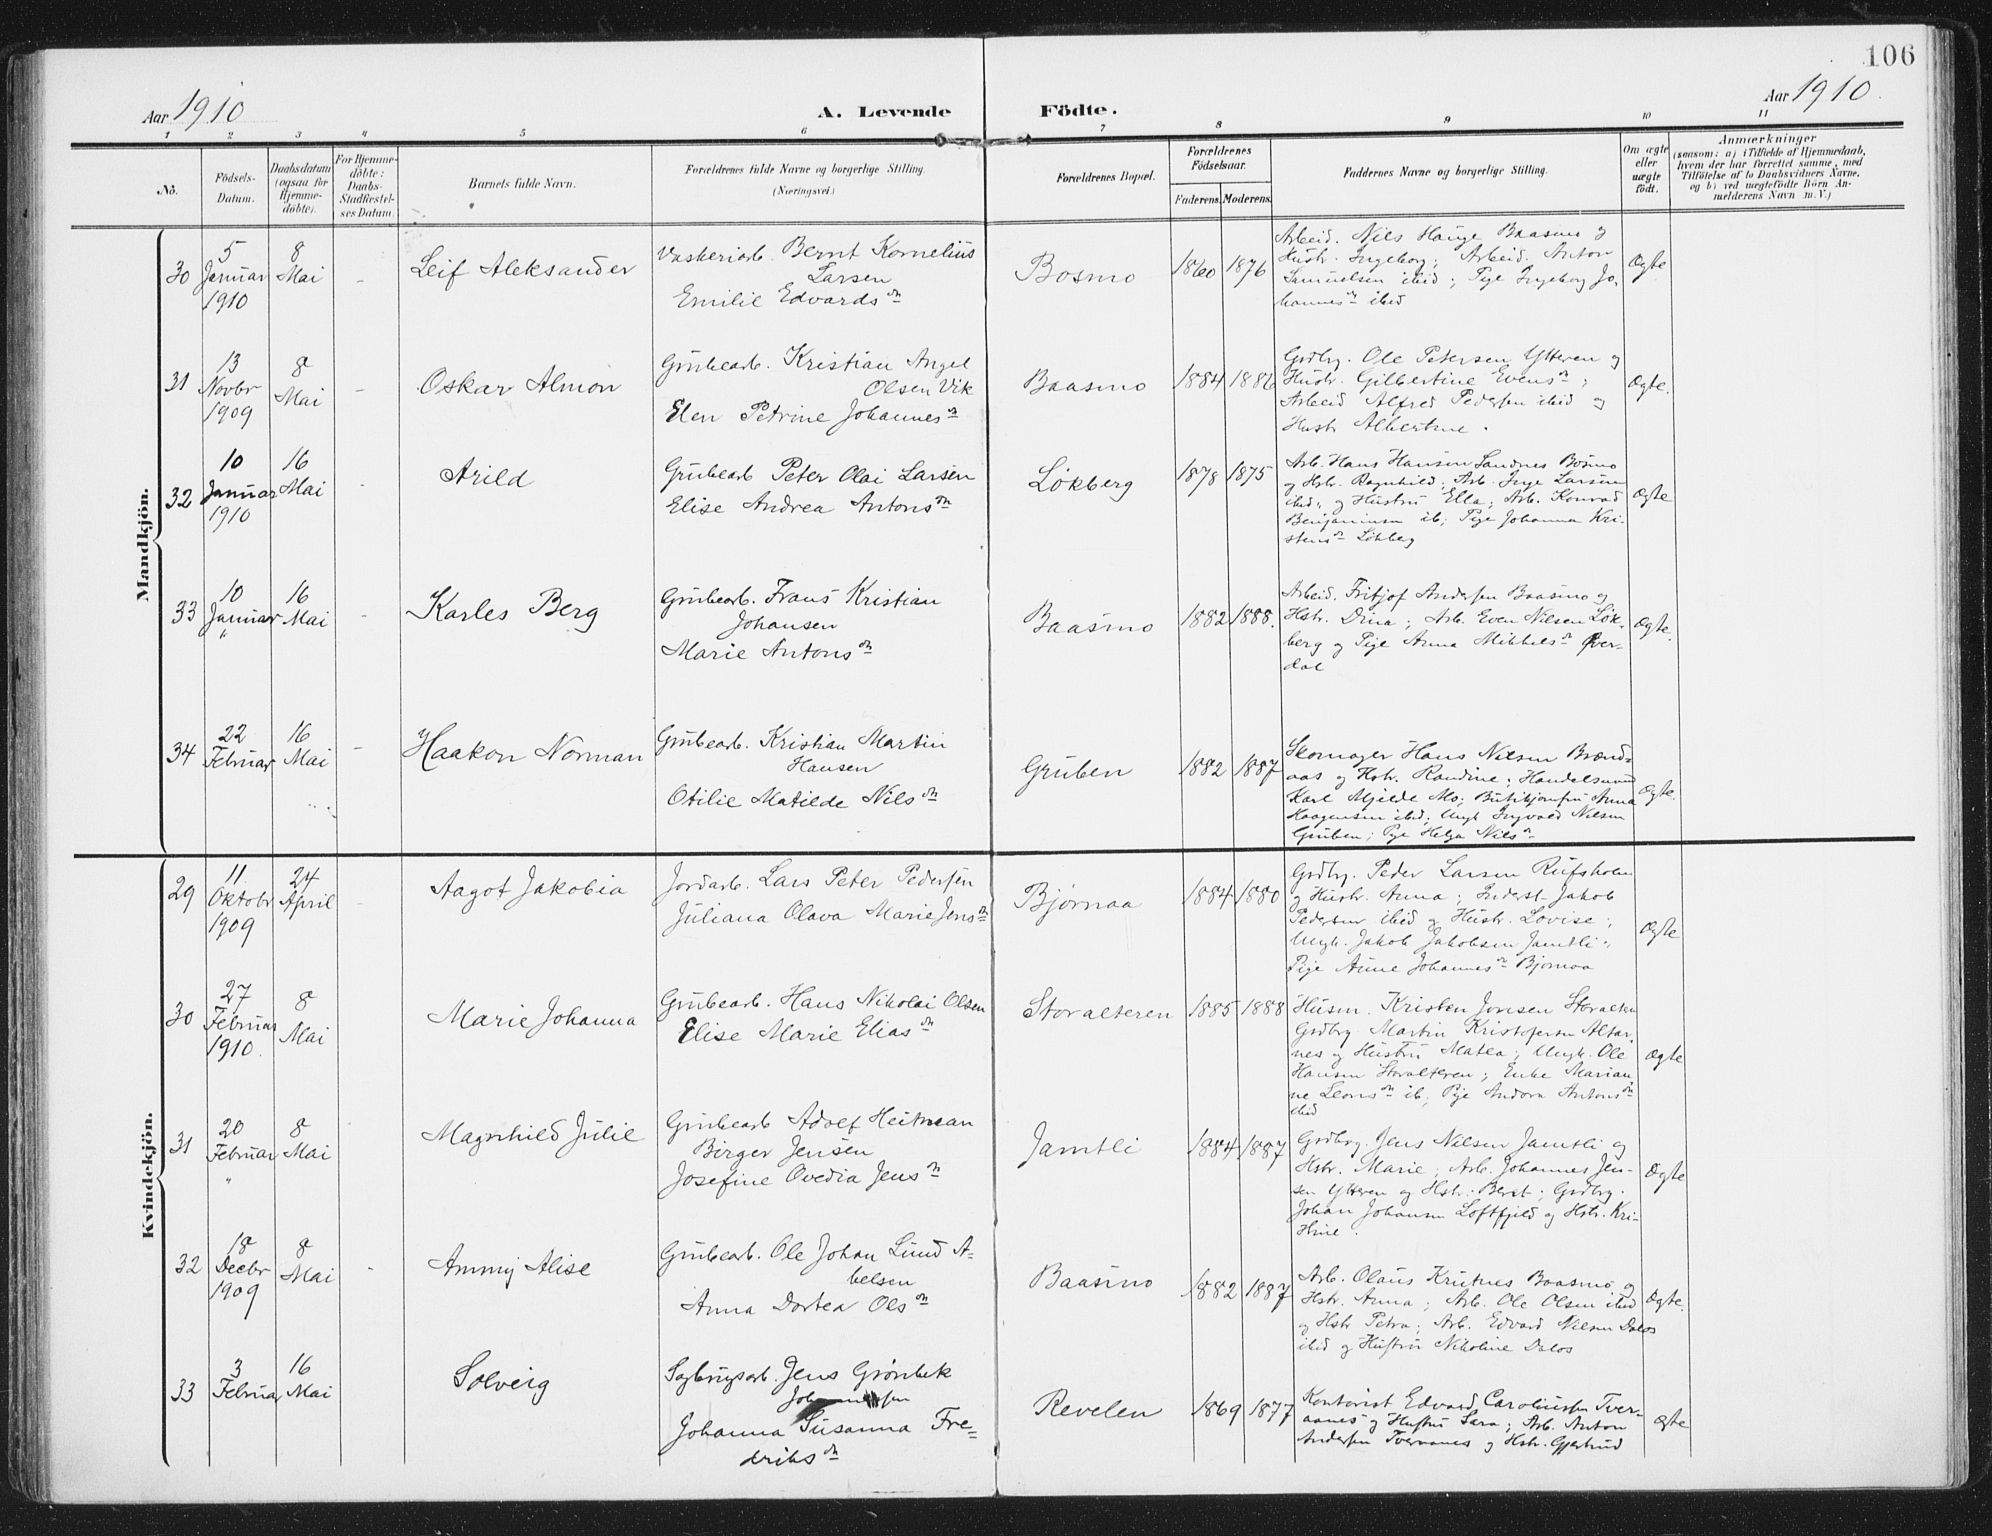 106
Aar 1910
A. Levende Födte.
Aar 1910.
1 2 3 4 5 6 7 8 9 10 11
No.
Födsels-
Datum.
Daabsdatum
(ogsaa for
Hjemme-
döbte).
For Hjemme-
döbte:
Daabs-
Stadfæstel-
ses Datum.
Barnets fulde Navn.
Forældrenes fulde Navne og borgerlige Stilling.
(Næringsvei.)
Forældrenes Bopæl.
Forældrenes
Födselsaar.
Faderens. Moderens.
Faddernes Navne og borgerlige Stilling.
Om ægte
eller
uægte
födt.
Anmærkninger
(saasom: a) i Tilfælde af Hjemmedaab,
hvem der har forrettet samme, med
Tilföielse af to Daabsvidners Navne,
og b) ved uægtefödte Börn An-
melderens Navn m. V.)
Mandkjön.
30
5
Januar
1910
8
Mai
-
Leif Aleksander
Vaskeriarb. Bernt Kornelius
Larsen
Emilie Edvardsdn
Bosmo
1860 1876
Arbeid. Nils Hauge Baasmo og
Hustr. Ingeborg; Arbeid. Anton
Samuelsen ibid; Pige Ingeborg Jo-
hannesdn ibid
Ægte
31
13
Novbr
1909
8
Mai
-
Oskar Almon
Grubearb. Kristian Angel
Olsen Vik
Elen Petrine Johannesdn
Baasmo
1884 1886
Grdbr. Ole Petersen Ytteren og
Hustr. Gilbertine Evensdn;
Arbeid Alfred Pedersen ibid og
Hustr Albertine.
Ægte.
32
10
Januar
1910
16
Mai
-
Arild
Grubearb Peter Olai Larsen
Elise Andrea Antonsdn
Løkberg
1878 1875
Arb. Hans Hansen Sandnes Bosmo
og Hstr. Ragnhild; Arb. Inge Larsen
ibid, og Hustru Ella; Arb. Konrad
Benjaminsen ib; Pige Johanna Kri-
stensdn Løkberg
Ægte
33
10
Januar
"
16
Mai
-
Karles Berg
Grubearb. Frans Kristian
Johansen
Marie Antonsdn
Baasmo
1882 1888.
Arbeid. Fritjof Andersen Baasmo og
Hstr. Dina; Arb. Even Nilsen Løk-
berg og Pige Anna Mikkelsdn Tver-
dal
Ægte.
34
22
Februar
16
Mai
-
Haakon Norman
Grubearb. Kristian Martin
Hansen
Otilie Matilde Nilsdn
Gruben
1882 1887
Skomager Hans Nilsen Brænd-
aas og Hstr. Randine; Handelsmand
Karl Mjelde Mo; Butikjomfru Anna
Haagensen ibid; Ungk Ingvald Nilsen
Gruben; Pige Helga Nilsdn
Ægte.
Kvindekjön.
29
11
Oktobr
1909
24
April
-
Aagot Jakobia
Jordarb. Lars Peter Pedersen
Juliana Olava Marie Jensdn
Bjørnaa
1884 1880
Grdbr. Peder Larsen Rufsholm
og Hustr. Anna; Inderst Jakob
Pedersen ibid og Hustr. Lovise;
Ungk. Jakob Jakobsen Jamtli;
Pige Anne Johannesdn Bjørnaa
Ægte
30
27
Februar
1910.
8
Mai
Marie Johanna
Grubearb. Hans Nikolai Olsen
Elise Marie Eliasdn
Storalteren
1885 1888
Husm. Kristen Jonsen Storalteren
Grdbr. Martin Kristofersen Altar-
nes og Hustru Matea; Ungk. Ole
Hansen Storalteren; Enke Marian-
ne Leonsdn ib, Pige Andora Antonsdn
ibid
Ægte
31
20
Februar
"
8
Mai
Magnhild Julie
Grubearb Adolf Heitman
Birger Jensen
Josefine Ovedia Jensdn
Jamtli
1884 1887
Grdbr. Jens Nilsen Jamtli og
Hstr. Marie; Arb. Johannes Jen-
sen Ytteren og Hstr. Beret; Grdbr.
Johan Johansen Loftfjeld og Hstr. Kri-
stine.
Ægte
32
18
Decbr
1909
8
Mai
-
Ammy Alise
Grubearb. Ole Johan Lund A-
belsen
Anna Dortea Olsdn
Baasmo
1882 1887
Arb. Olaus Krutnes Baasmo og
Hstr. Anna; Arb. Ole Olsen ibid
og Hstr Petra; Arb. Edvard Nilsen Dalos
ibid og Hustru Nikoline Dalos
Ægte.
33
3
Februar
16
Mai
Solveig
Sagbrugsarb. Jens Grønbek
Johannessen
Johanna Susanna Fre-
driksdn
Revelen
1869 1877
Kontorist Edvard Caroliussen Tver-
aanes og Hustru Sara; Arb. Anton
Andersen Tveraanes og Hstr. Gjertrud
Ægte